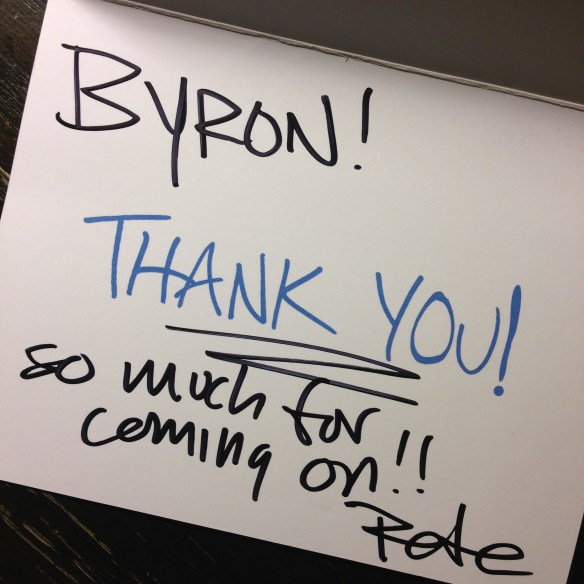 BYRON!
THANK YOU!
so much for
coming on!!
Pete